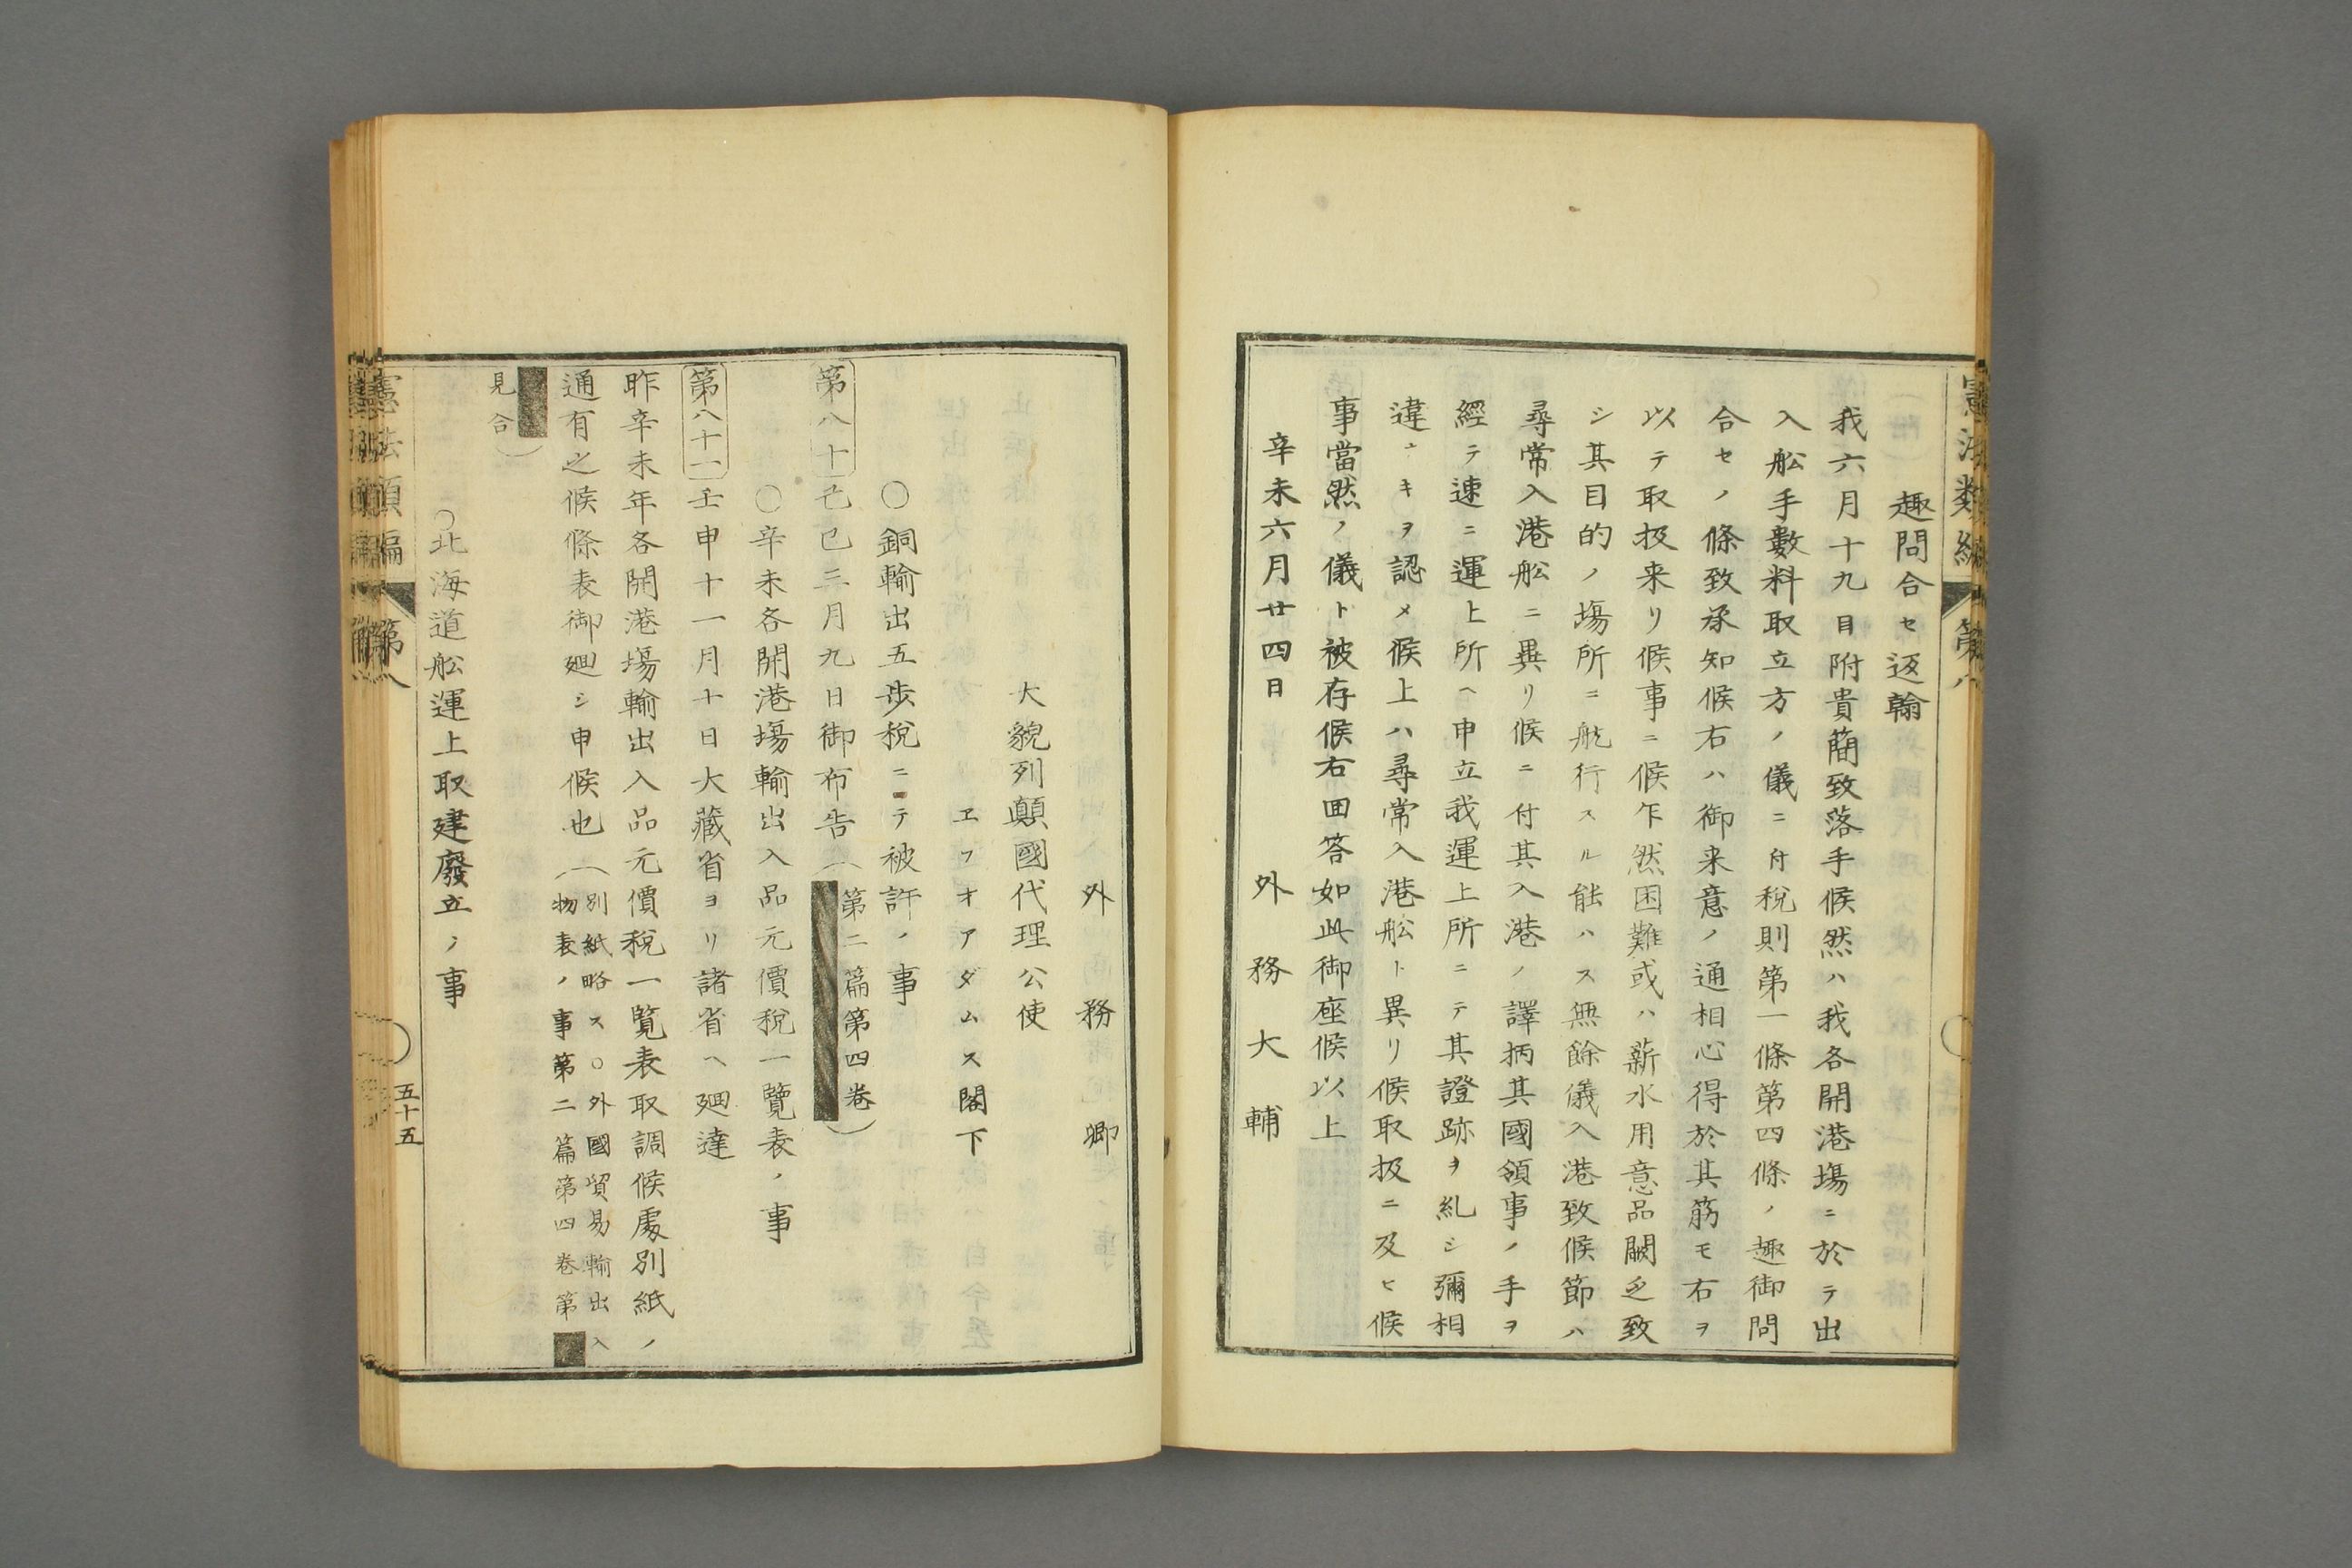 趣問合セ返翰
我六月十九日附貴簡致落手候然ハ我各開港場ニ於テ出
入舩手數料取立方ノ儀ニ付稅則第一條第四條ノ趣御問
合セノ條致承知候右ハ御来意ノ通相心得於其筋モ右ヲ
以テ取扱来リ候事ニ候乍然困難或ハ薪水用意品闕乏致
シ其目的ノ場所ニ航行スル能ハス無餘儀入港致候節ハ
尋常入港舩ニ異リ候ニ付其入港ノ譯柄其國領事ノ手ヲ
經テ速ニ運上所ヘ申立我運上所ニテ其證跡ヲ糺シ彌相
違ナキヲ認メ候上ハ尋常入港舩ト異リ候取扱ニ及ヒ候
事當然ノ儀ト被存候右回答如此御座候以上
辛未六月廿四日 外務大輔
外務卿
大貌列顛國代理公使
エフオアダムス閣下
〇銅輸出五歩稅ニテ被許ノ事
第八十 己巳三月九日御布告（第二篇第四卷）
〇辛未各開港場輸出入品元價稅一覽表ノ事
第八十一 壬申十一月十日大藏省ヨリ諸省ヘ廻達
昨辛未年各開港場輸出入品元價稅一覽表取調候處別紙ノ
通有之候條表御廻シ申候也（別紙略ス〇外國貿易輸出入
物表ノ事第二篇第四卷第
見合）
〇北海道舩運上取建廢立ノ事
憲法類編 第八
五十五